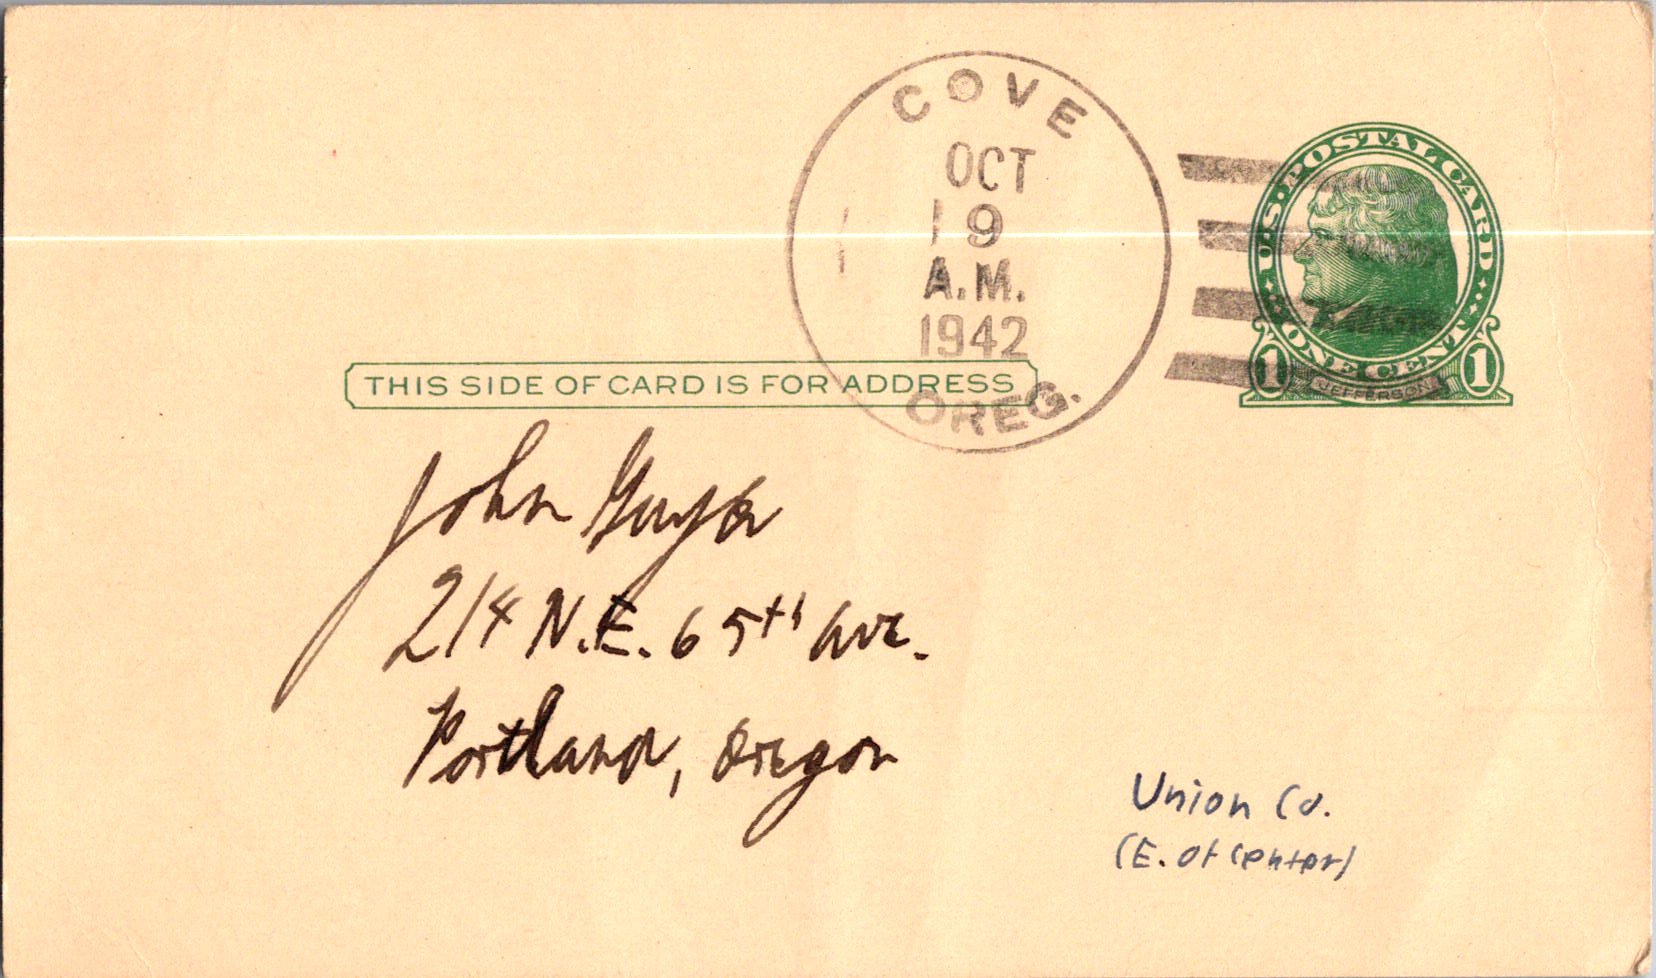 COVE
OCT
19
A.M.
1942
OREG.
U.S. POSTAL CARD
ONE CENT
1 1
JEFFERSON
THIS SIDE OF CARD IS FOR ADDRESS
John
214 N.E. 65th Ave.
Portland, Oregon
Union Co.
(E. of Center)